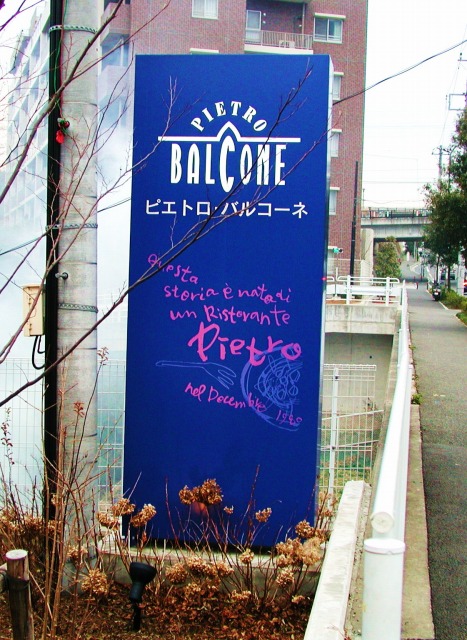 PIETRO
BALCONE
ピエトロ バルコーネ
Questa
storia è nata di
un Ristorante
Pietro
nel Decembre